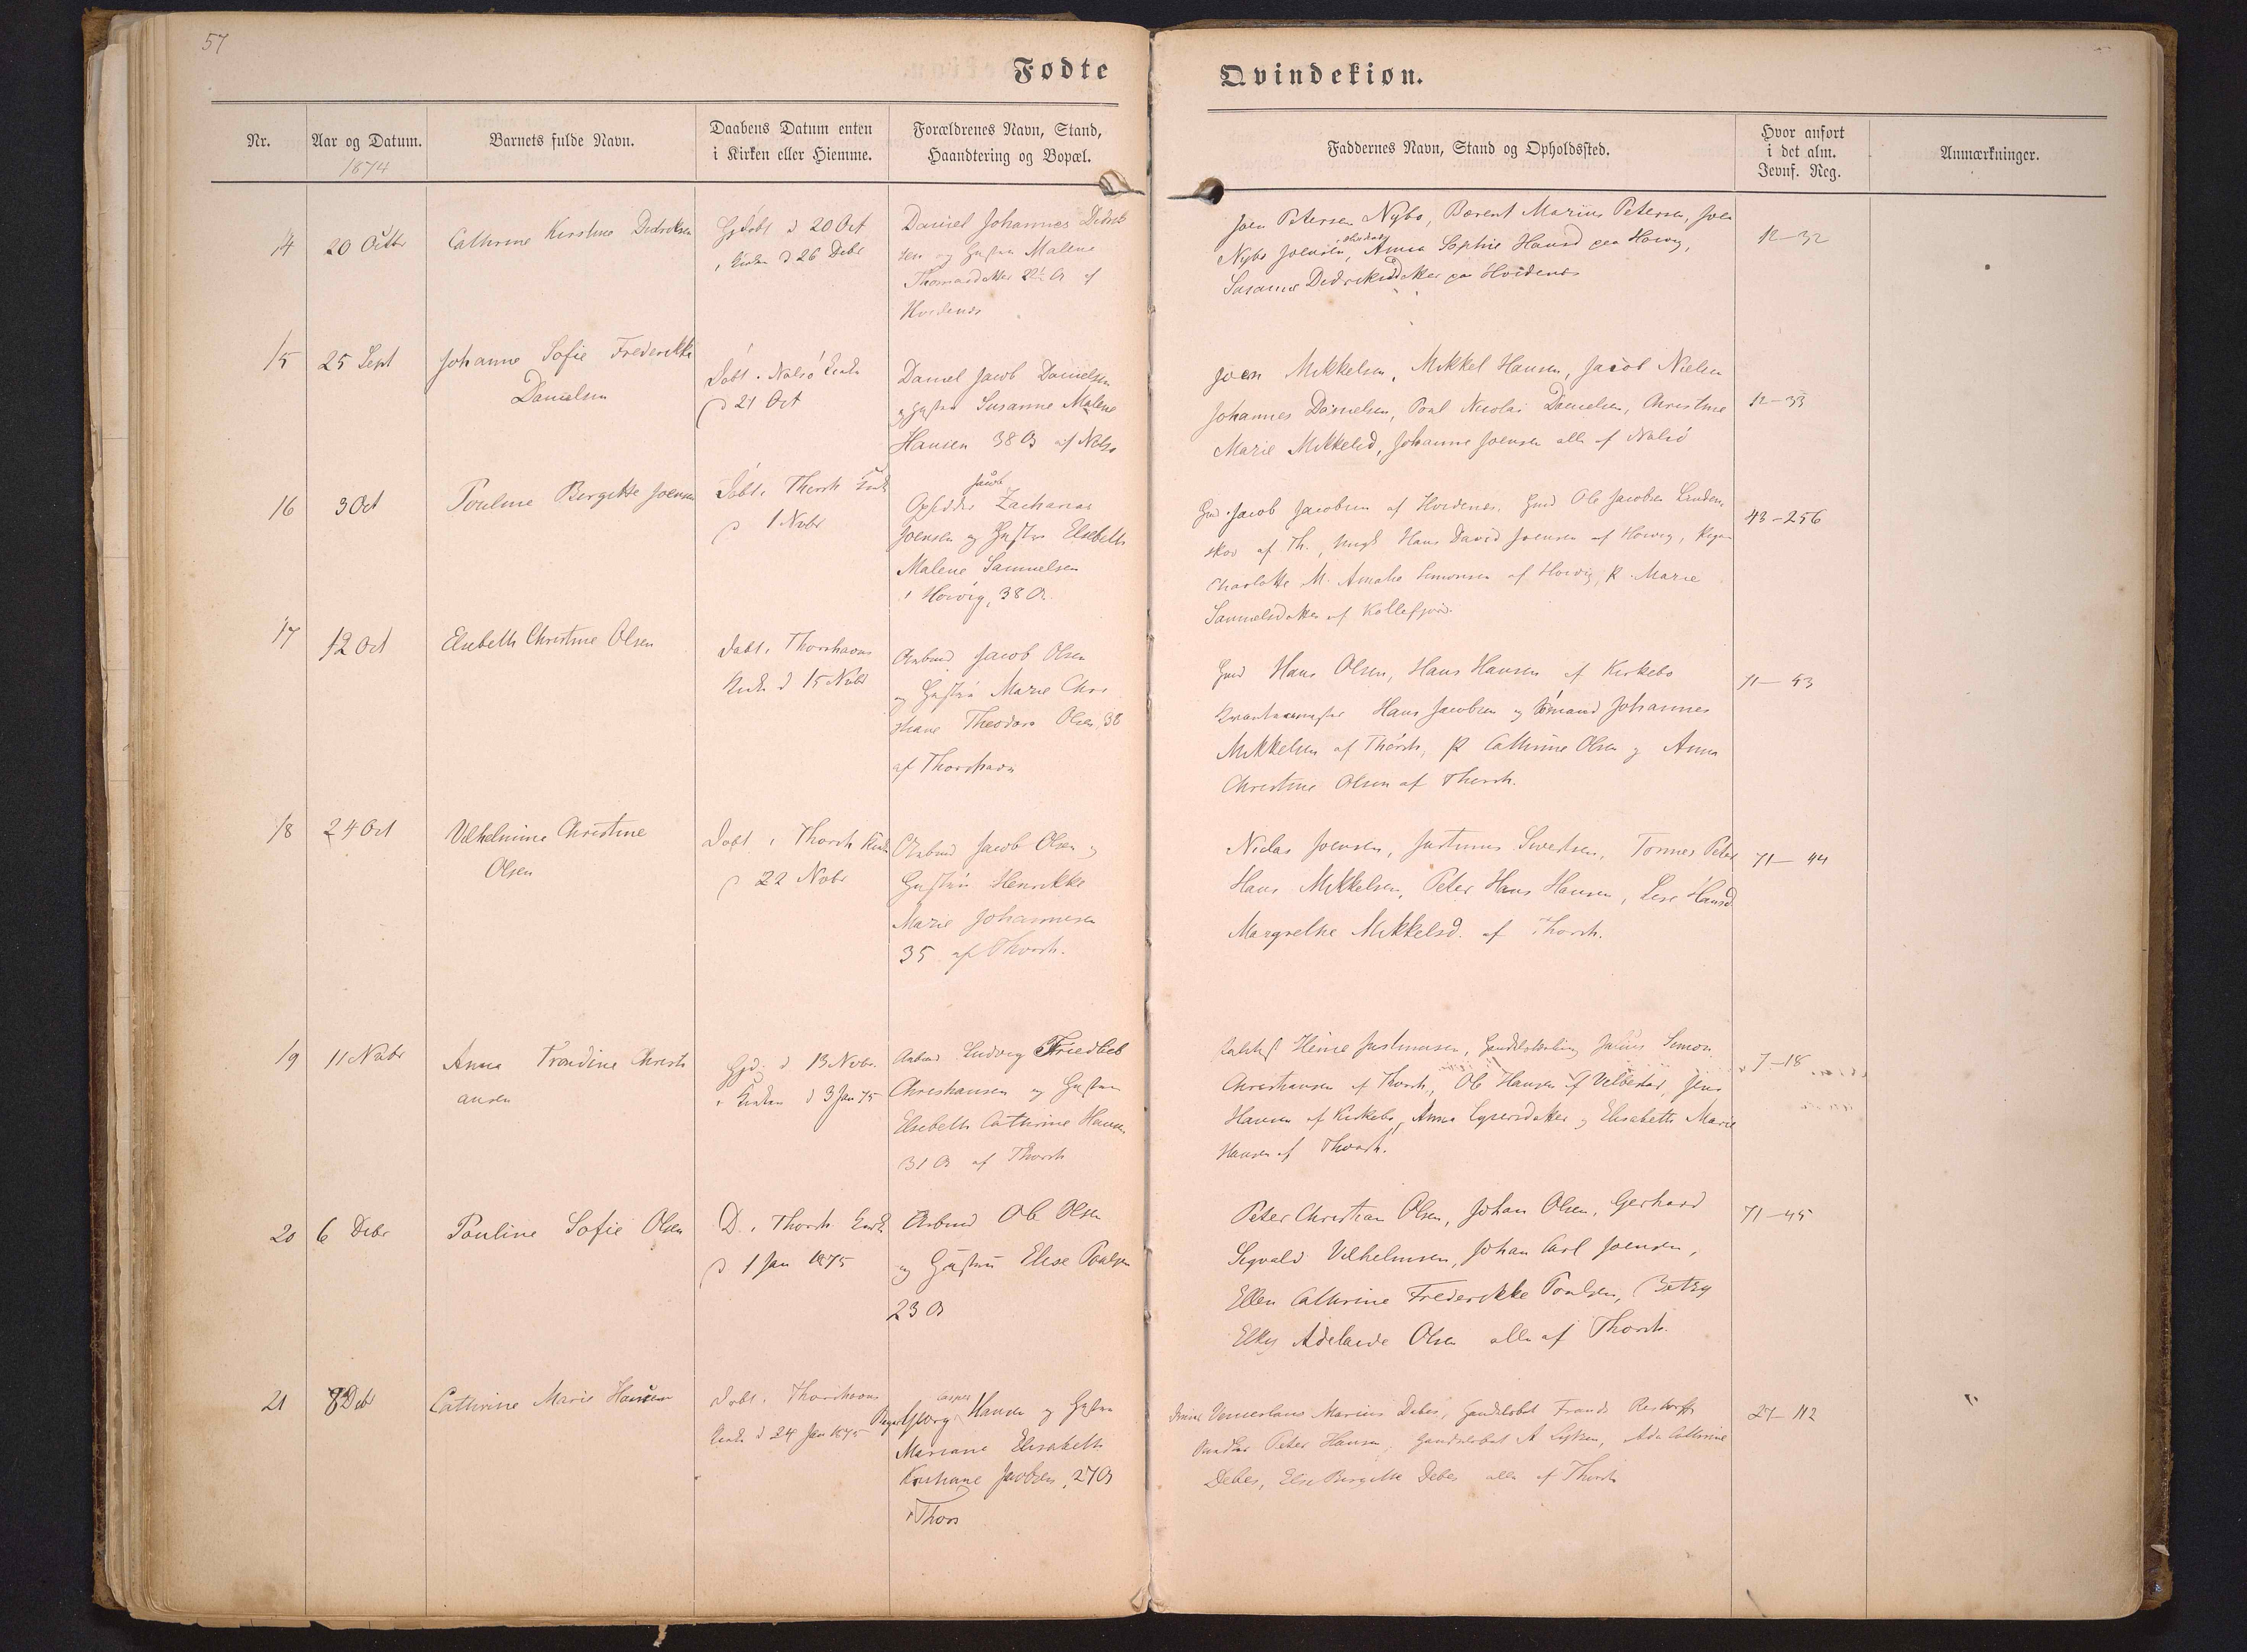 57
Fødte
Qvindekiøn.
Nr.
Aar og Datum.
1874
Barnets fulde Navn.
Daabens Datum enten
i Kirken eller Hiemme.
Forældrenes Navn, Stand,
Haandtering og Bopæl.
Faddernes Navn, Stand og Opholdssted.
Hvor anført
i det alm.
Jevnf. Reg.
Anmærkninger.
14
20 Octbr
Cathrine Kirstine Didriksen
Hjdøbt d 20 Oct
i Kirken d 26 Debr
Daniel Johannes Didrik
sen og Hustru Malene
Thomasdatter
Hvidenes
Joen Petersen Nybo, Barent Marius Petersen, Joen
Nybo Joensen, Anna Sophie Hansd paa Hoivig,
Susanne Didriksdatter paa Hvidenes
12-32
15
25 Sept
Johanne Sofie Frederikke
Danielsen
Døbt i Nolsø Kirke
d 21 Oct
Daniel Jacob Danielsen
og Hustru Susanne Malene
Hansen 38 A af Nolsø
Joen Mikkelsen, Mikkel Hansen, Jacob Nielsen
Johannes Danielsen, Poul Nicolai Danielsen, Christine
Marie Mikkelsd, Johanne Joensen alle af Nolsø
12-33
16
3 Oct
Pouline Birgitte Joensen
Døbt i Thorsh Kirke
d 1 Nvbr
Jacob
Zacharias
Joensen og Hustru Elsebeth
Malene Samuelsen
i Hoivig, 38 A
Gmd Jacob Jacobsen af Hvidenes. Gmd Ole Jacobsen Linden
skov af Th., Ungk Hans David Joensen af Hoivig, Pigen
Charlotte M. Amalie Simonsen af Hoivig, P. Marie
Samuelsdatter af Kollefjord.
43-256
17
12 Oct
Elsebeth Christine Olsen
Døbt i Thorshavns
Kirke d 15 Nvbr
Arbmd Jacob Olsen
og Hustru Marie Chri
stiane Theodora Olsen 38
af Thorshavn
Gmd Hans Olsen, Hans Hansen af Kirkebø
Hans Jacobsen og Sømand Johannes
Mikkelsen af Thorsh, P. Cathrine Olsen og Anna
Christine Olsen af Thorsh.
71-43
18
24 Oct
Vilhelmine Christine
Olsen
Døbt i Thorsh Kirke
d 22 Nvbr
Arbmd Jacob Olsen og
Hustru Henrikke
Marie Johannesen
35 af Thorsh.
Niclas Joensen, Justinus Sivertsen, Tønnes Peter
Hans Mikkelsen, Peter Hans Hansen, Lise Hansd
Margrethe Mikkelsd. af Thorsh.
71-44
19
11 Nvbr
Anna Trondine Christi
ansen
Hjd. d 13 Nvbr.
i Kirken d 3 Jan 75
Arbmd Ludvig Friedlieb
Christiansen og Hustru
Elsebeth Cathrine Hansen
31 A af Thorsh
Heine Justinusen, Handelslærling Julius Simon
Christiansen af Thorsh, Ole Hansen af Velbestad, Jens
Hansen af Kirkebø, Anna og Elisabeth Marie
Hansen af Thorsh.
7-18
20
6 Debr
Pauline Sofie Olsen
D. i Thorsh Kirke
d 1 Jan 1875
Arbmd Ole Olsen
og Hustru Elise Poulsen
23 A
Peter Christian Olsen, Johan Olsen, Gerhard
Sigvald Vilhelmsen, Johan Carl Joensen,
Ellen Cathrine Frederikke Poulsen, Betzy
Adelaide Olsen alle af Thorsh.
71-45
21
8 Debr
Cathrine Marie Hansen
Døbt i Thorshavns
Kirke d 24 Jan 1875
Casper
Georg Hansen og Hustru
Mariane Elisabeth
Kristiane Jacobsen, 27 A
i Thors
Marius Debes, Handelsbet Frands Restorff
Peter Hansen, Handelsbet A Lützen, Ada Cathrine
Debes, Else Birgitte Debes alle af Thorsh
27-112
"